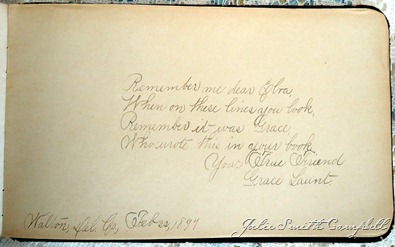 Remember me dear Elva,
When on these lines you look,
Remember it was Grace,
Who wrote this in your book
Your True Friend
Grace Launt.
Walton, Del. Co, Feb 22, 1897
Julie Smith Campbell